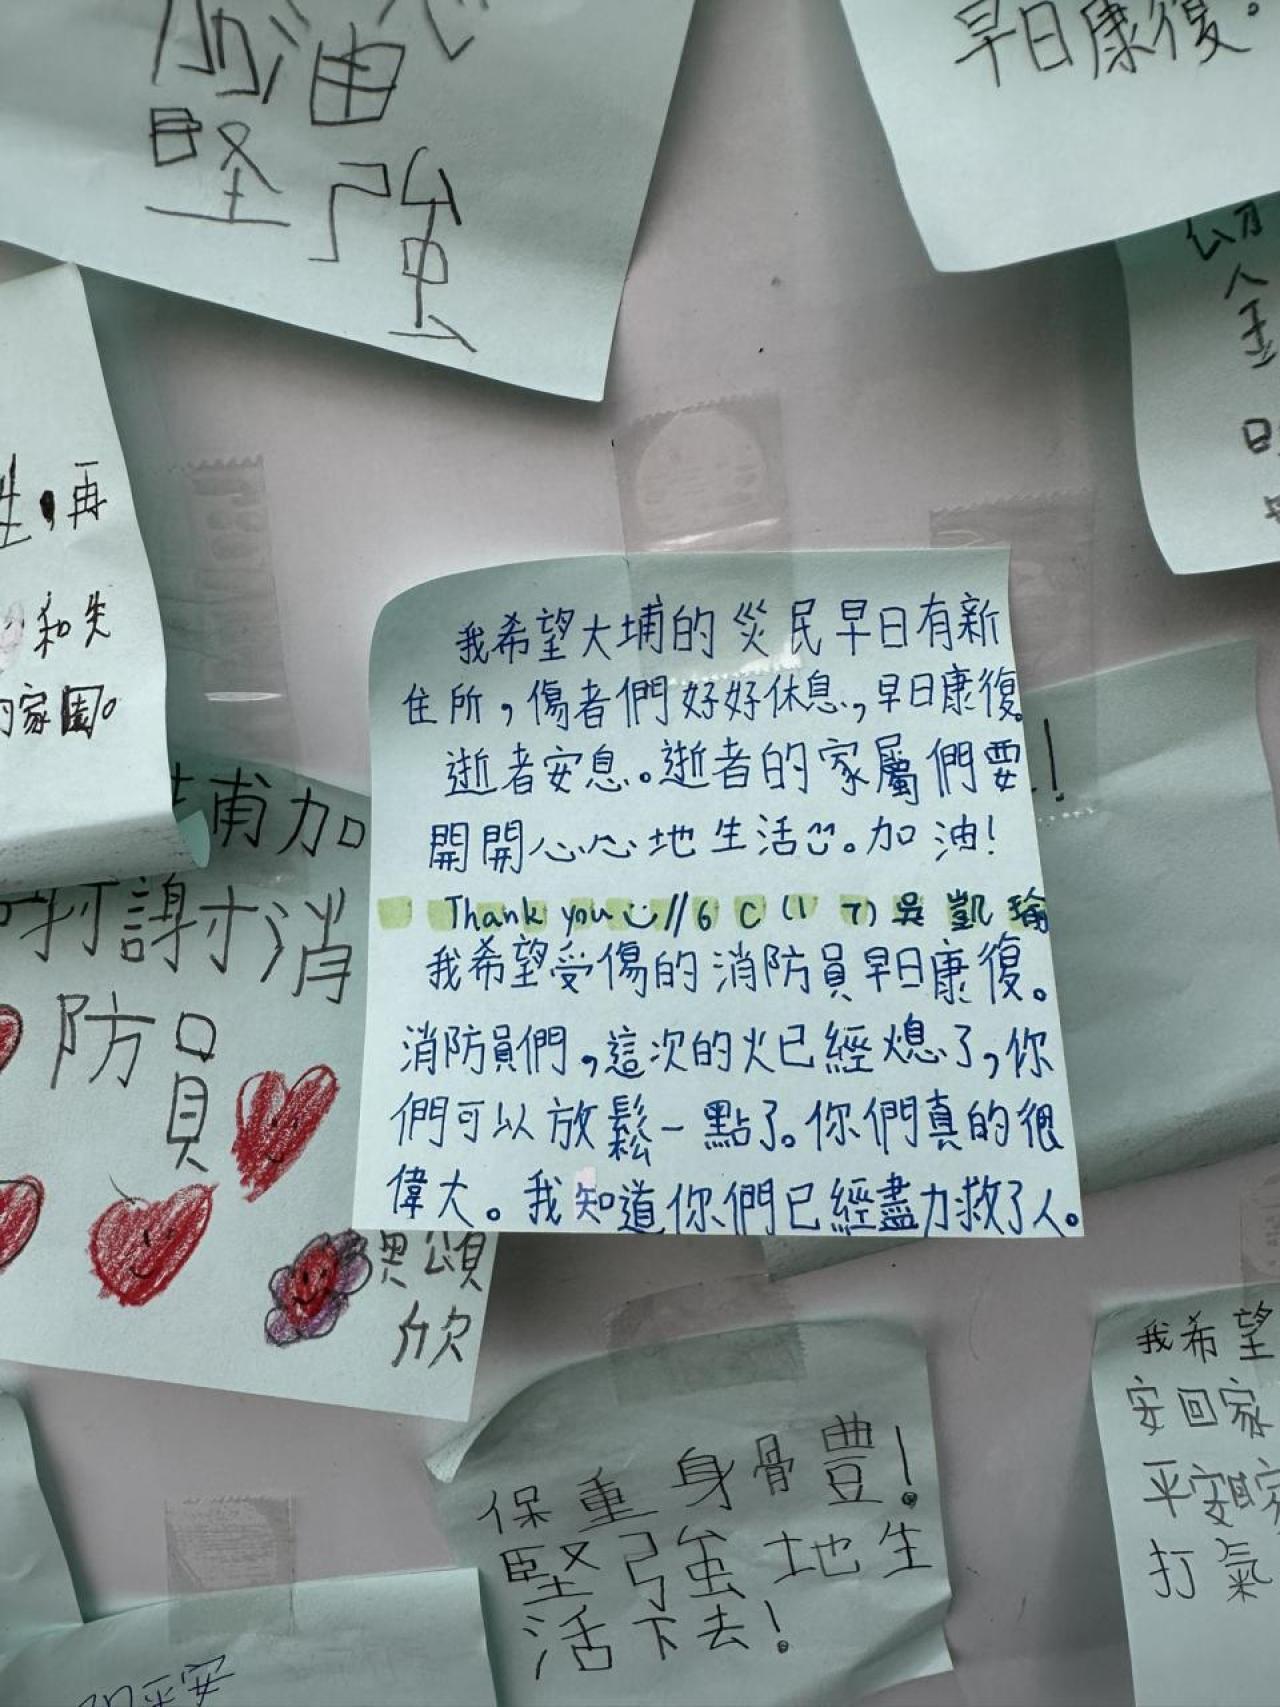 加油
堅強
早日康復。
再
和失
的家園。
我希望大埔的災民早日有新
住所，傷者們好好休息，早日康復。
逝者安息。逝者的家屬們要
開開心心地生活。加油！
Thank you // 6C(17) 吳凱瑜
我希望受傷的消防員早日康復。
消防員們，這次的火已經熄了，你
們可以放鬆一點了。你們真的很
偉大。我知道你們已經盡力救了人。
！
埔加
謝消
防員
頌
欣
保重身體！
堅強地生
活下去！
我希望
安回家
平安
打氣
平安